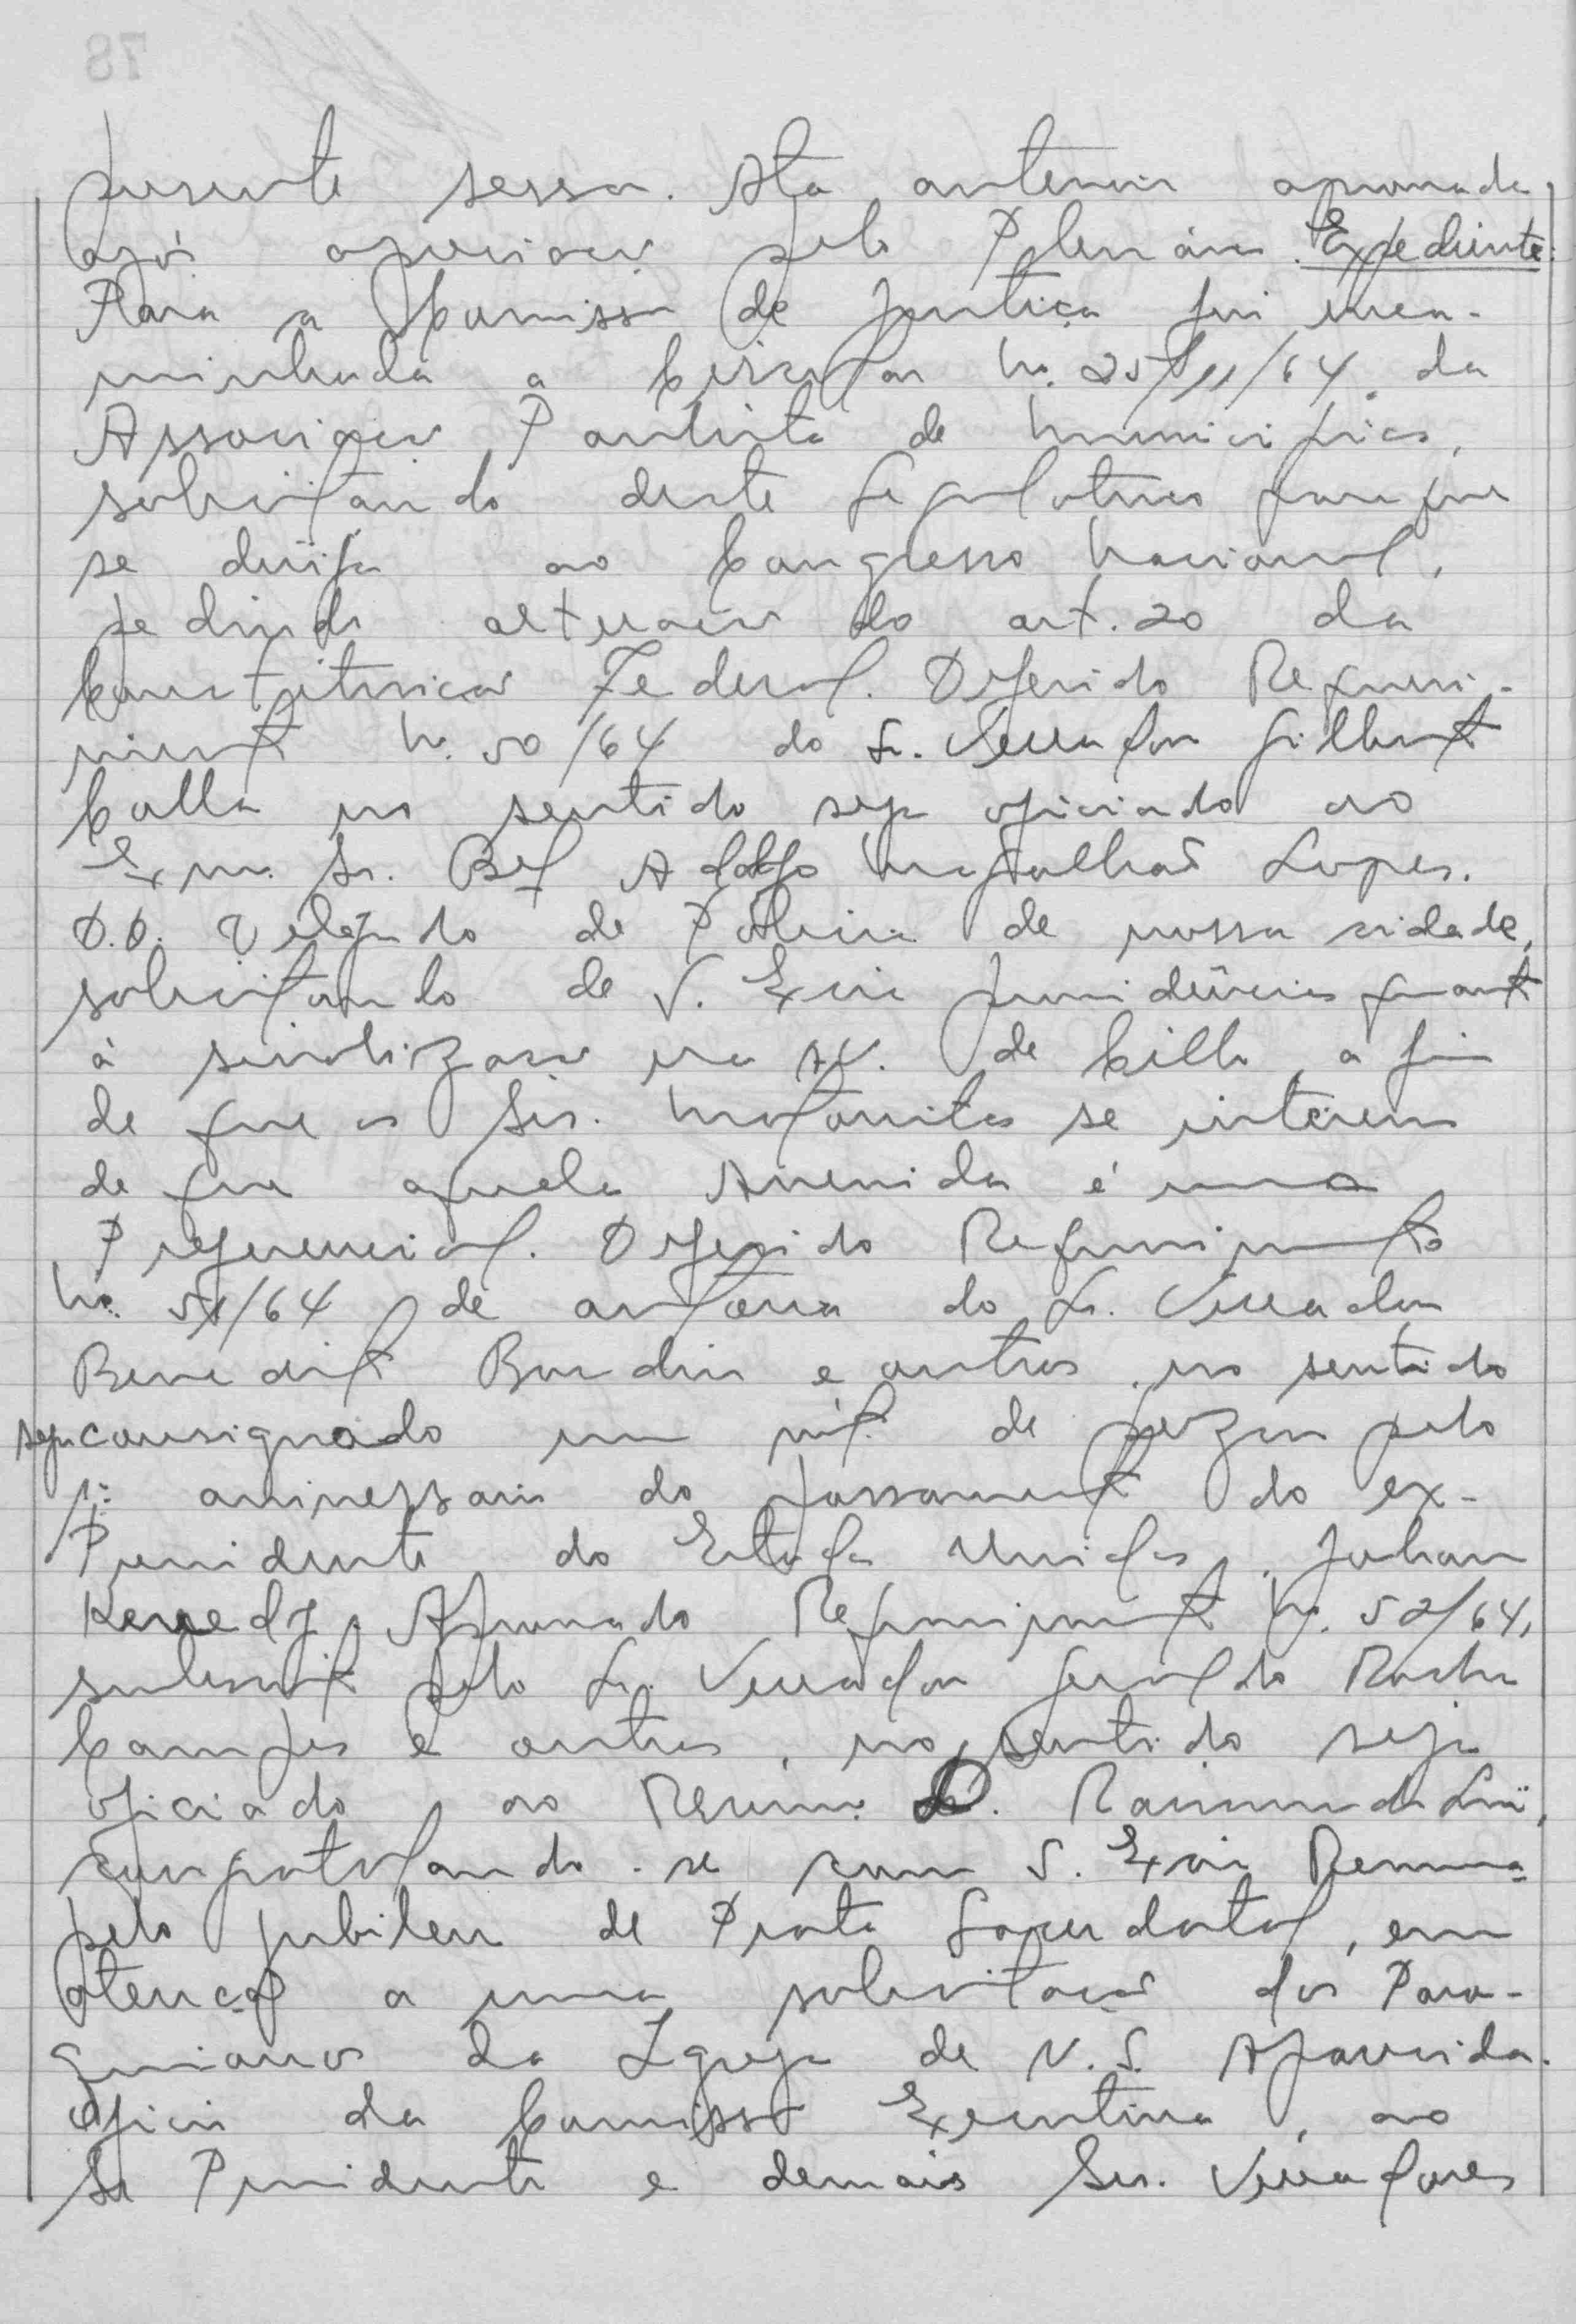 presente sessão. Ata anterior aprovada
após apreciação pelo Plenário. Expediente:
Para a Comissão de Justiça foi enca-
minhada a Circular nº. 25/11/64, da
Associação Paulista de Municípios,
solicitando deste Legislativo para que
se dirija ao Congresso Nacional,
pedindo alteração do art. 20 da
Constituição Federal. Deferido Requeri-
mento nº. 50/64 do Sr. Vereador Gilberto
Calla no sentido seja oficiado ao
Exmo. Sr. Bel Adolfo Magalhães Lopes.
D.D. Delegado de Polícia de nossa cidade,
solicitando de S. Excia providências quanto
à sinalização na Av. de Cillo, a fim
de que os Srs. Motoristas se interem
de que aquela Avenida é uma
Preferencial. Deferido Requerimento
nº. 51/64 de autoria do Sr. Vereador
Benedito Bordin e outros, no sentido
seja consignado um mto. de pezar pelo
1º aniversario do passamento do ex-
Presidente do Estados Unidos, Johan
Kenedy. Aprovado Requerimento nº. 52/64,
subscrito pelo Sr. Vereador Geraldo Rocha
Campos e outros, no sentido seja
oficiado ao Revmo. D. Raimundo Lui,
congratulando-se com S. Excia Revmma
pelo jubileu de Prata Sacerdotal, em
atenção a uma solicitação dos Paro-
quianos da Igreja de N. S. Aparecida.
Ofício da Comissão Executiva, ao
Sr Presidente e demais Srs. Vereadores